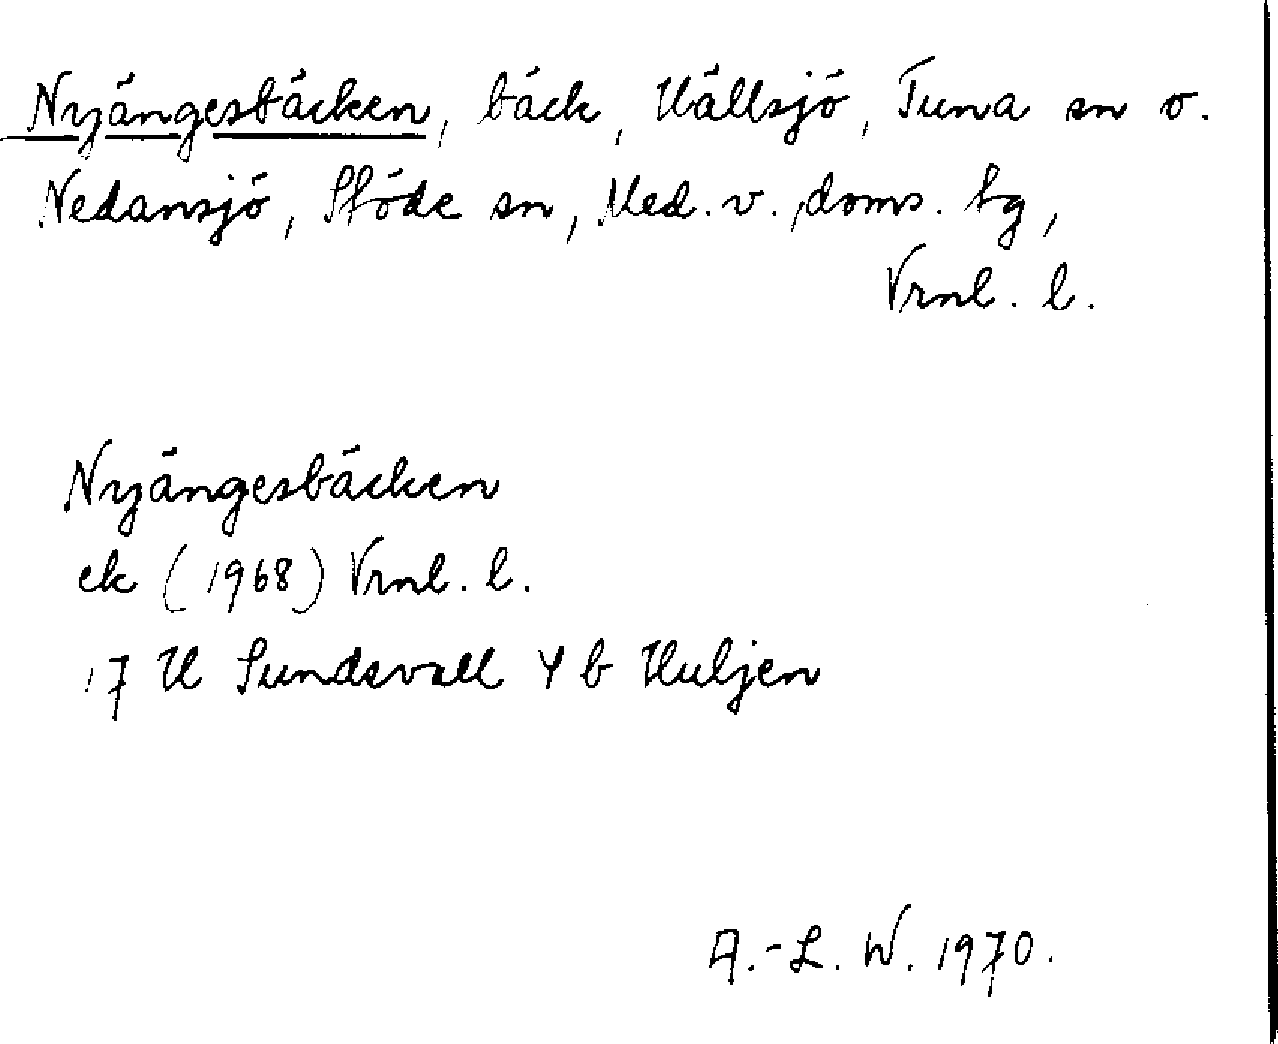 Nyängesbäcken, bäck, Hällsjö, Tuna sn o.
Nedansjö, Stöde sn, Med. v., doms. bg,
Vrnl. l.
Nyängesbäcken
ek (1968) Vrnl. l.
17 H Sundsvall 4 b Huljen
A.-L. W. 1970.